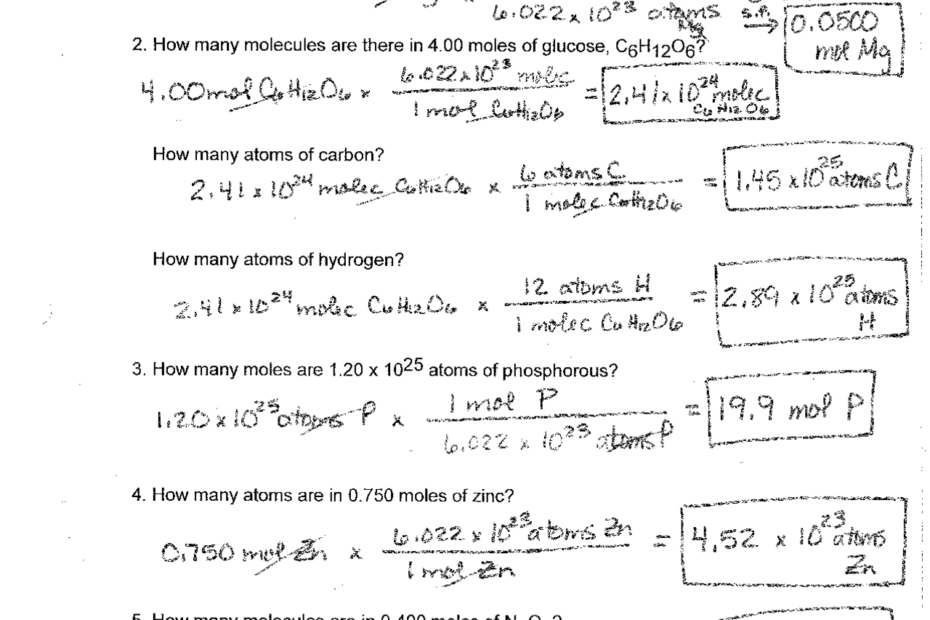 6.022 x 10^23 atoms Mg s.f. → 0.0500 mol Mg
2. How many molecules are there in 4.00 moles of glucose, C6H12O6?
4.00 mol C6H12O6 x 6.022 x 10^23 molec / 1 mol C6H12O6 = 2.41 x 10^24 molec C6H12O6
How many atoms of carbon?
2.41 x 10^24 molec C6H12O6 x 6 atoms C / 1 molec C6H12O6 = 1.45 x 10^25 atoms C
How many atoms of hydrogen?
2.41 x 10^24 molec C6H12O6 x 12 atoms H / 1 molec C6H12O6 = 2.89 x 10^25 atoms H
3. How many moles are 1.20 x 10^25 atoms of phosphorous?
1.20 x 10^25 atoms P x 1 mol P / 6.022 x 10^23 atoms P = 19.9 mol P
4. How many atoms are in 0.750 moles of zinc?
0.750 mol Zn x 6.022 x 10^23 atoms Zn / 1 mol Zn = 4.52 x 10^23 atoms Zn
5. How many molecules are in 0.400 moles of N2O5?